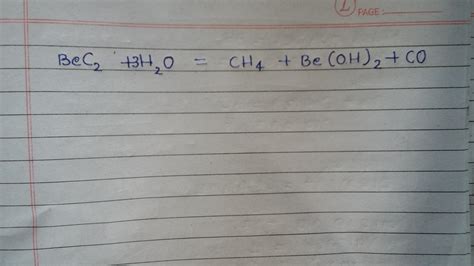 1 PAGE:
BeC₂ +3H₂O = CH₄ + Be(OH)₂ + CO